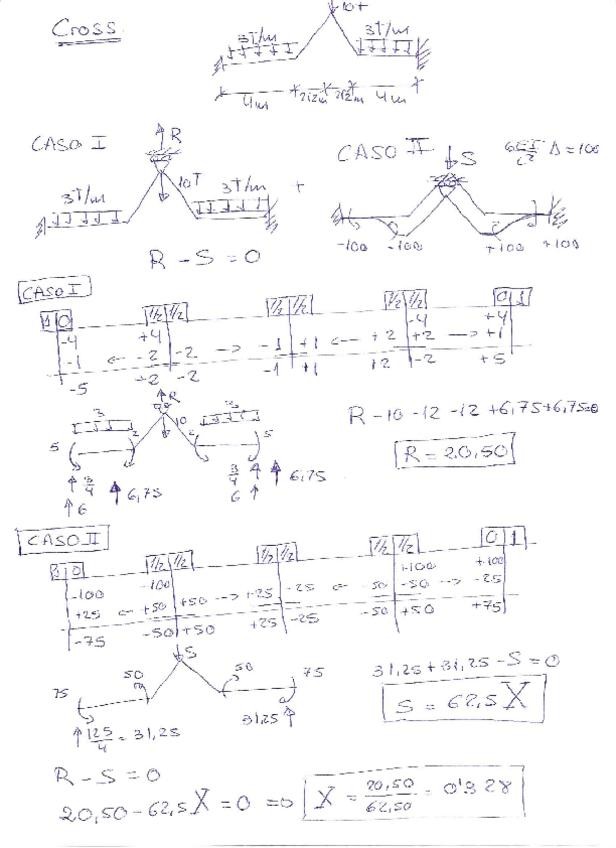 Cross
10T
3T/m 3T/m
4m 2√2m 2√2m 4m
CASO I
R
10T
3T/m 3T/m
+
CASO II
S
6EI/L² Δ = 100
-100 -100 +100 +100
R - S = 0
CASO I
1 0 1/2 1/2 1/2 1/2 1/2 1/2 0 1
-4 +4 -4 +4
-1 ← -2 -2 → -1 +1 ← +2 +2 → +1
-5 +2 -2 -1 +1 +2 -2 +5
R
3 10 3
5 2 2 5
3/4 6,75 3/4 6,75
6 6
R - 10 - 12 - 12 + 6,75 + 6,75 = 0
R = 20,50
CASO II
1 0 1/2 1/2 1/2 1/2 1/2 1/2 0 1
-100 -100 +100 +100
+25 ← +50 +50 → +25 -25 ← -50 -50 → -25
-75 -50 +50 +25 -25 -50 +50 +75
S
75 50 50 75
125/4 = 31,25 31,25
31,25 + 31,25 - S = 0
S = 62,5 X
R - S = 0
20,50 - 62,5 X = 0 ⇒ X = 20,50/62,50 = 0'328